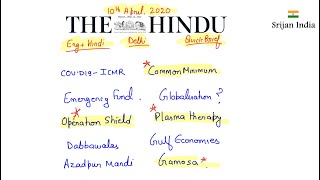 10th April, 2020
THE HINDU
Eng + Hindi Delhi Quick Brief
Srijan India
COVID19-ICMR
Emergency Fund
*Operation Shield
Dabbawalas
Azadpur Mandi
*Common Minimum
Globalisation?
*Plasma therapy
Gulf Economies
Gamosa*